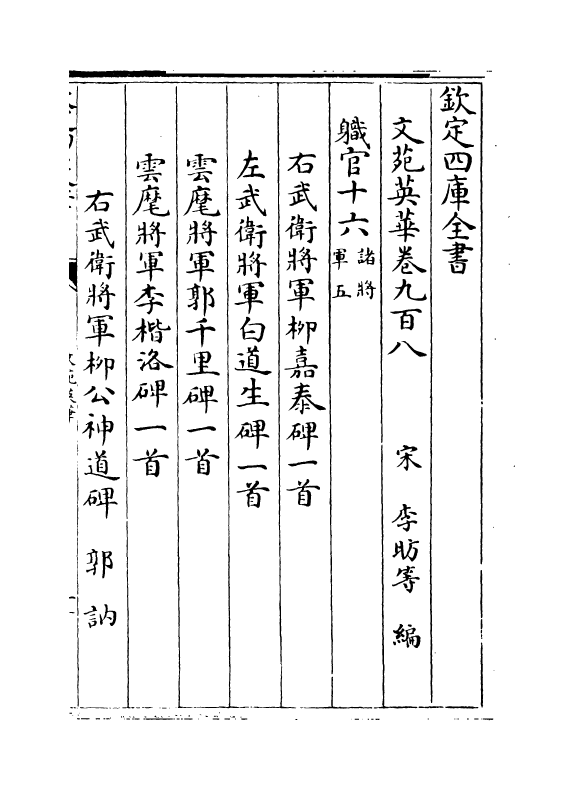 欽定四庫全書
文苑英華卷九百八　宋　李昉等　編
職官十六諸將軍五
右武衛將軍柳嘉泰碑一首
左武衛將軍白道生碑一首
雲麾將軍郭千里碑一首
雲麾將軍李楷洛碑一首
右武衛將軍柳公神道碑　郭　訥